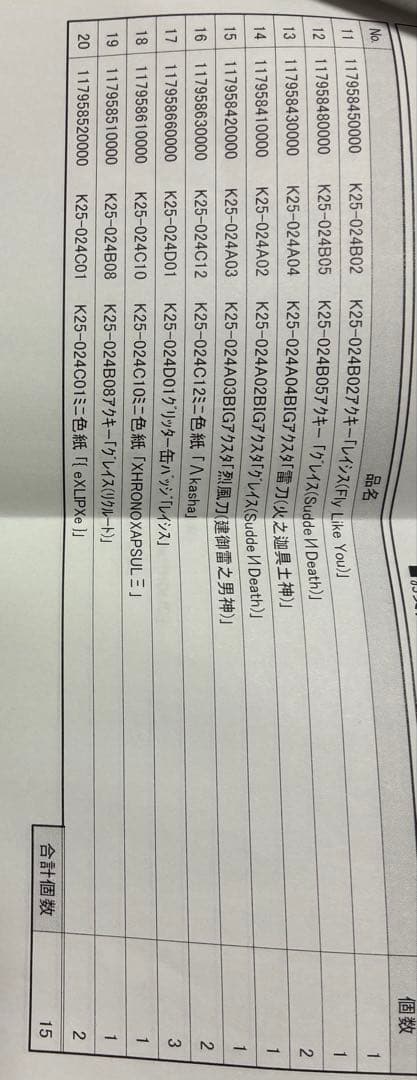 No. 品名 個数
11 117958450000 K25-024B02 K25-024B02アクキー「レイシス(Fly Like You)」 1
12 117958480000 K25-024B05 K25-024B05アクキー「グレイス(SuddeИDeath)」 1
13 117958430000 K25-024A04 K25-024A04BIGアクスタ「雷刀(火之迦具土神)」 2
14 117958410000 K25-024A02 K25-024A02BIGアクスタ「グレイス(SuddeИDeath)」 1
15 117958420000 K25-024A03 K25-024A03BIGアクスタ「烈風刀(建御雷之男神)」 1
16 117958630000 K25-024C12 K25-024C12ミニ色紙「Λkasha」 2
17 117958660000 K25-024D01 K25-024D01グリッター缶バッジ「レイシス」 3
18 117958610000 K25-024C10 K25-024C10ミニ色紙「XHRONOXAPSULΞ」 1
19 117958510000 K25-024B08 K25-024B08アクキー「グレイス(リクルート)」 1
20 117958520000 K25-024C01 K25-024C01ミニ色紙「{ eXLIPXe }」 2
合計個数 15